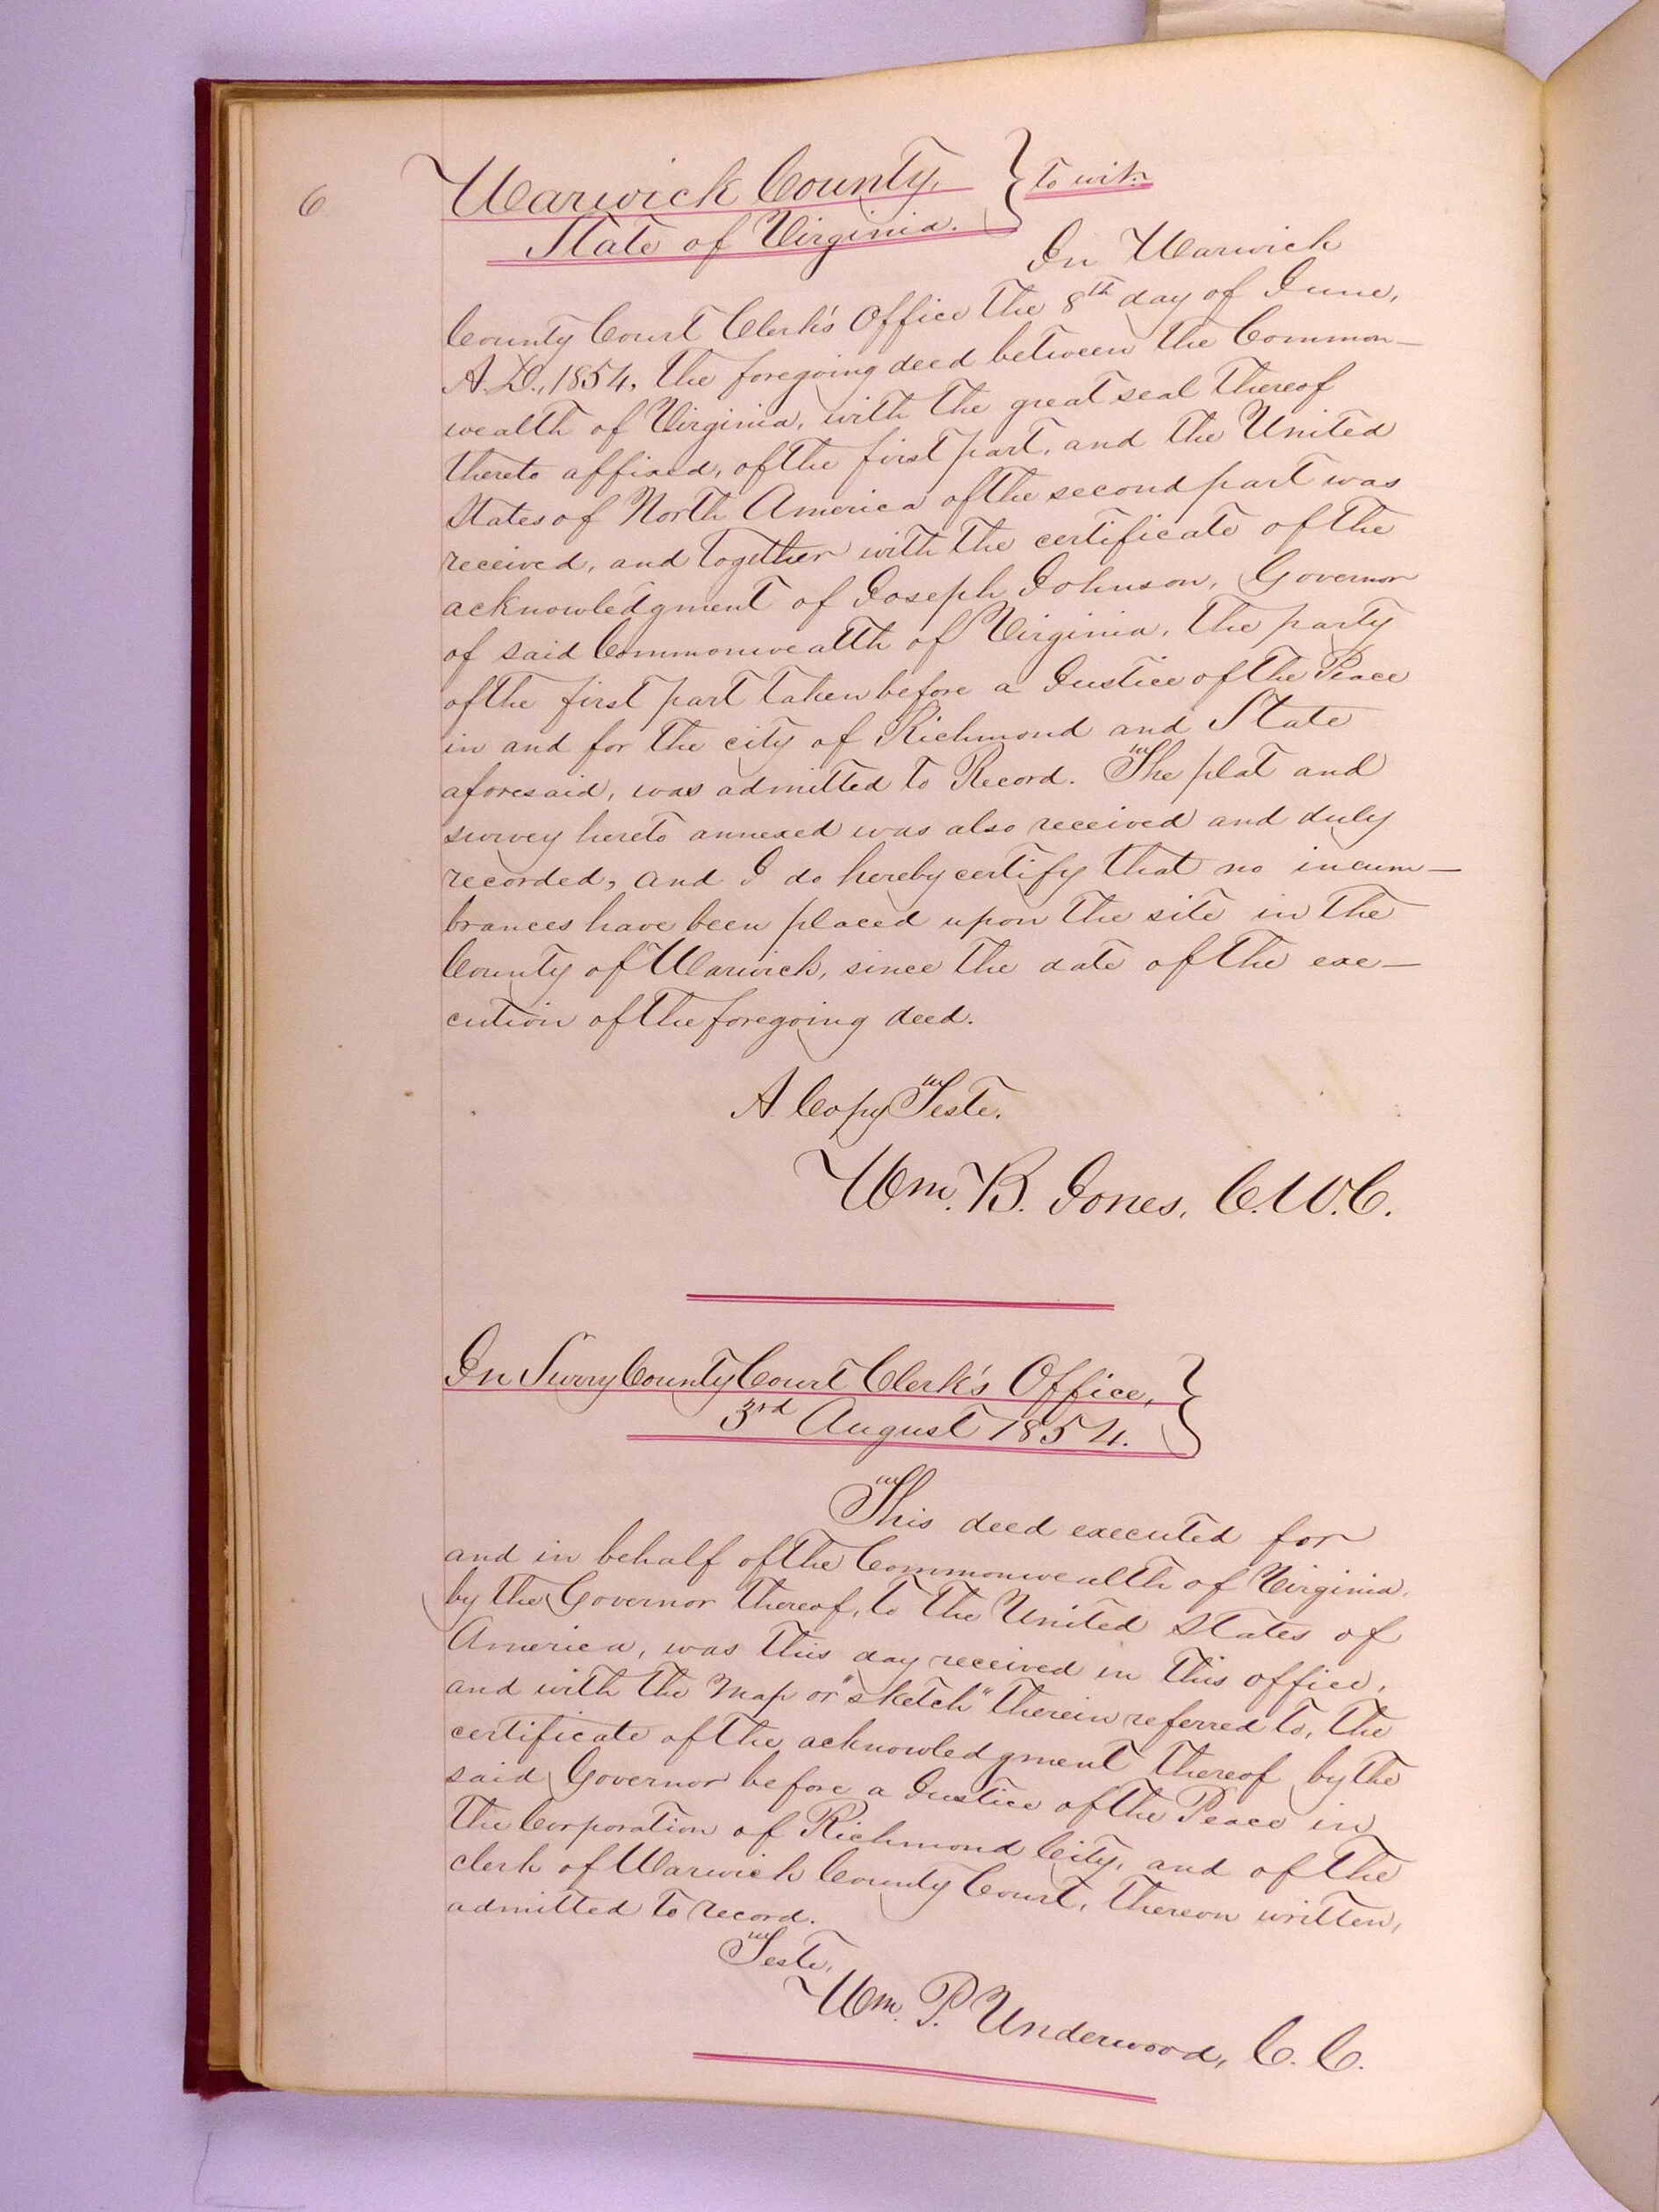 6
Warwick County,
State of Virginia. } to wit:
In Warwick
County Court Clerk's Office the 8th day of June,
A.D., 1854, the foregoing deed between the Common-
wealth of Virginia, with the great seal thereof
thereto affixed, of the first part, and the United
States of North America of the second part was
received, and together with the certificate of the
acknowledgment of Joseph Johnson, Governor
of said Commonwealth of Virginia, the party
of the first part taken before a Justice of the Peace
in and for the city of Richmond and State
aforesaid, was admitted to Record. The plat and
survey hereto annexed was also received and duly
recorded, and I do hereby certify that no incum-
brances have been placed upon the site in the
County of Warwick, since the date of the exe-
cution of the foregoing deed.
A Copy Teste.
Wm. B. Jones, C.W.C.
In Surry County Court Clerk's Office, }
3rd August 1854.
This deed executed for
and in behalf of the Commonwealth of Virginia,
by the Governor thereof, to the United States of
America, was this day received in this office,
and with the Map or "sketch" therein referred to, the
certificate of the acknowledgment thereof by the
said Governor before a Justice of the Peace in
the Corporation of Richmond City, and of the
clerk of Warwick County Court, thereon written,
admitted to record.
Teste,
Wm. P. Underwood, C. C.